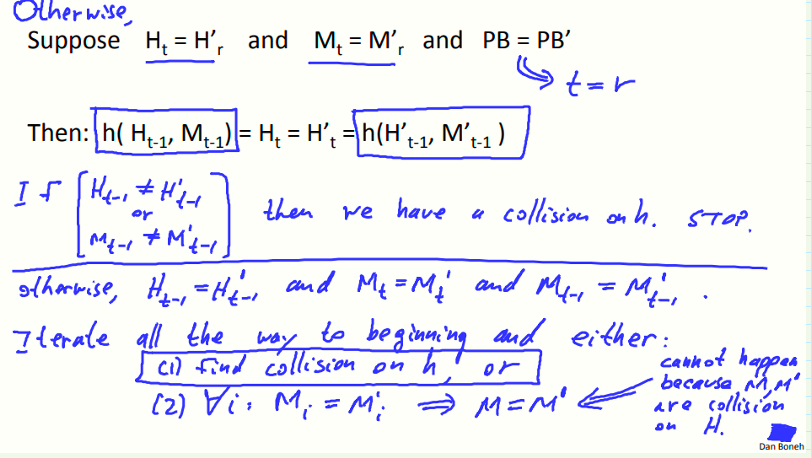 Otherwise,
Suppose Hₜ = H'ᵣ and Mₜ = M'ᵣ and PB = PB'
t = r
Then: h( Hₜ₋₁, Mₜ₋₁) = Hₜ = H'ₜ = h(H'ₜ₋₁, M'ₜ₋₁ )
If [ Hₜ₋₁ ≠ H'ₜ₋₁
or
Mₜ₋₁ ≠ M'ₜ₋₁ ]
then we have a collision on h. STOP.
otherwise, Hₜ₋₁ = H'ₜ₋₁ and Mₜ = Mₜ' and Mₜ₋₁ = M'ₜ₋₁ .
Iterate all the way to beginning and either:
(1) find collision on h, or
(2) ∀i: Mᵢ = Mᵢ' ⇒ M = M'
cannot happen
because M, M'
are collision
on H.
Dan Boneh